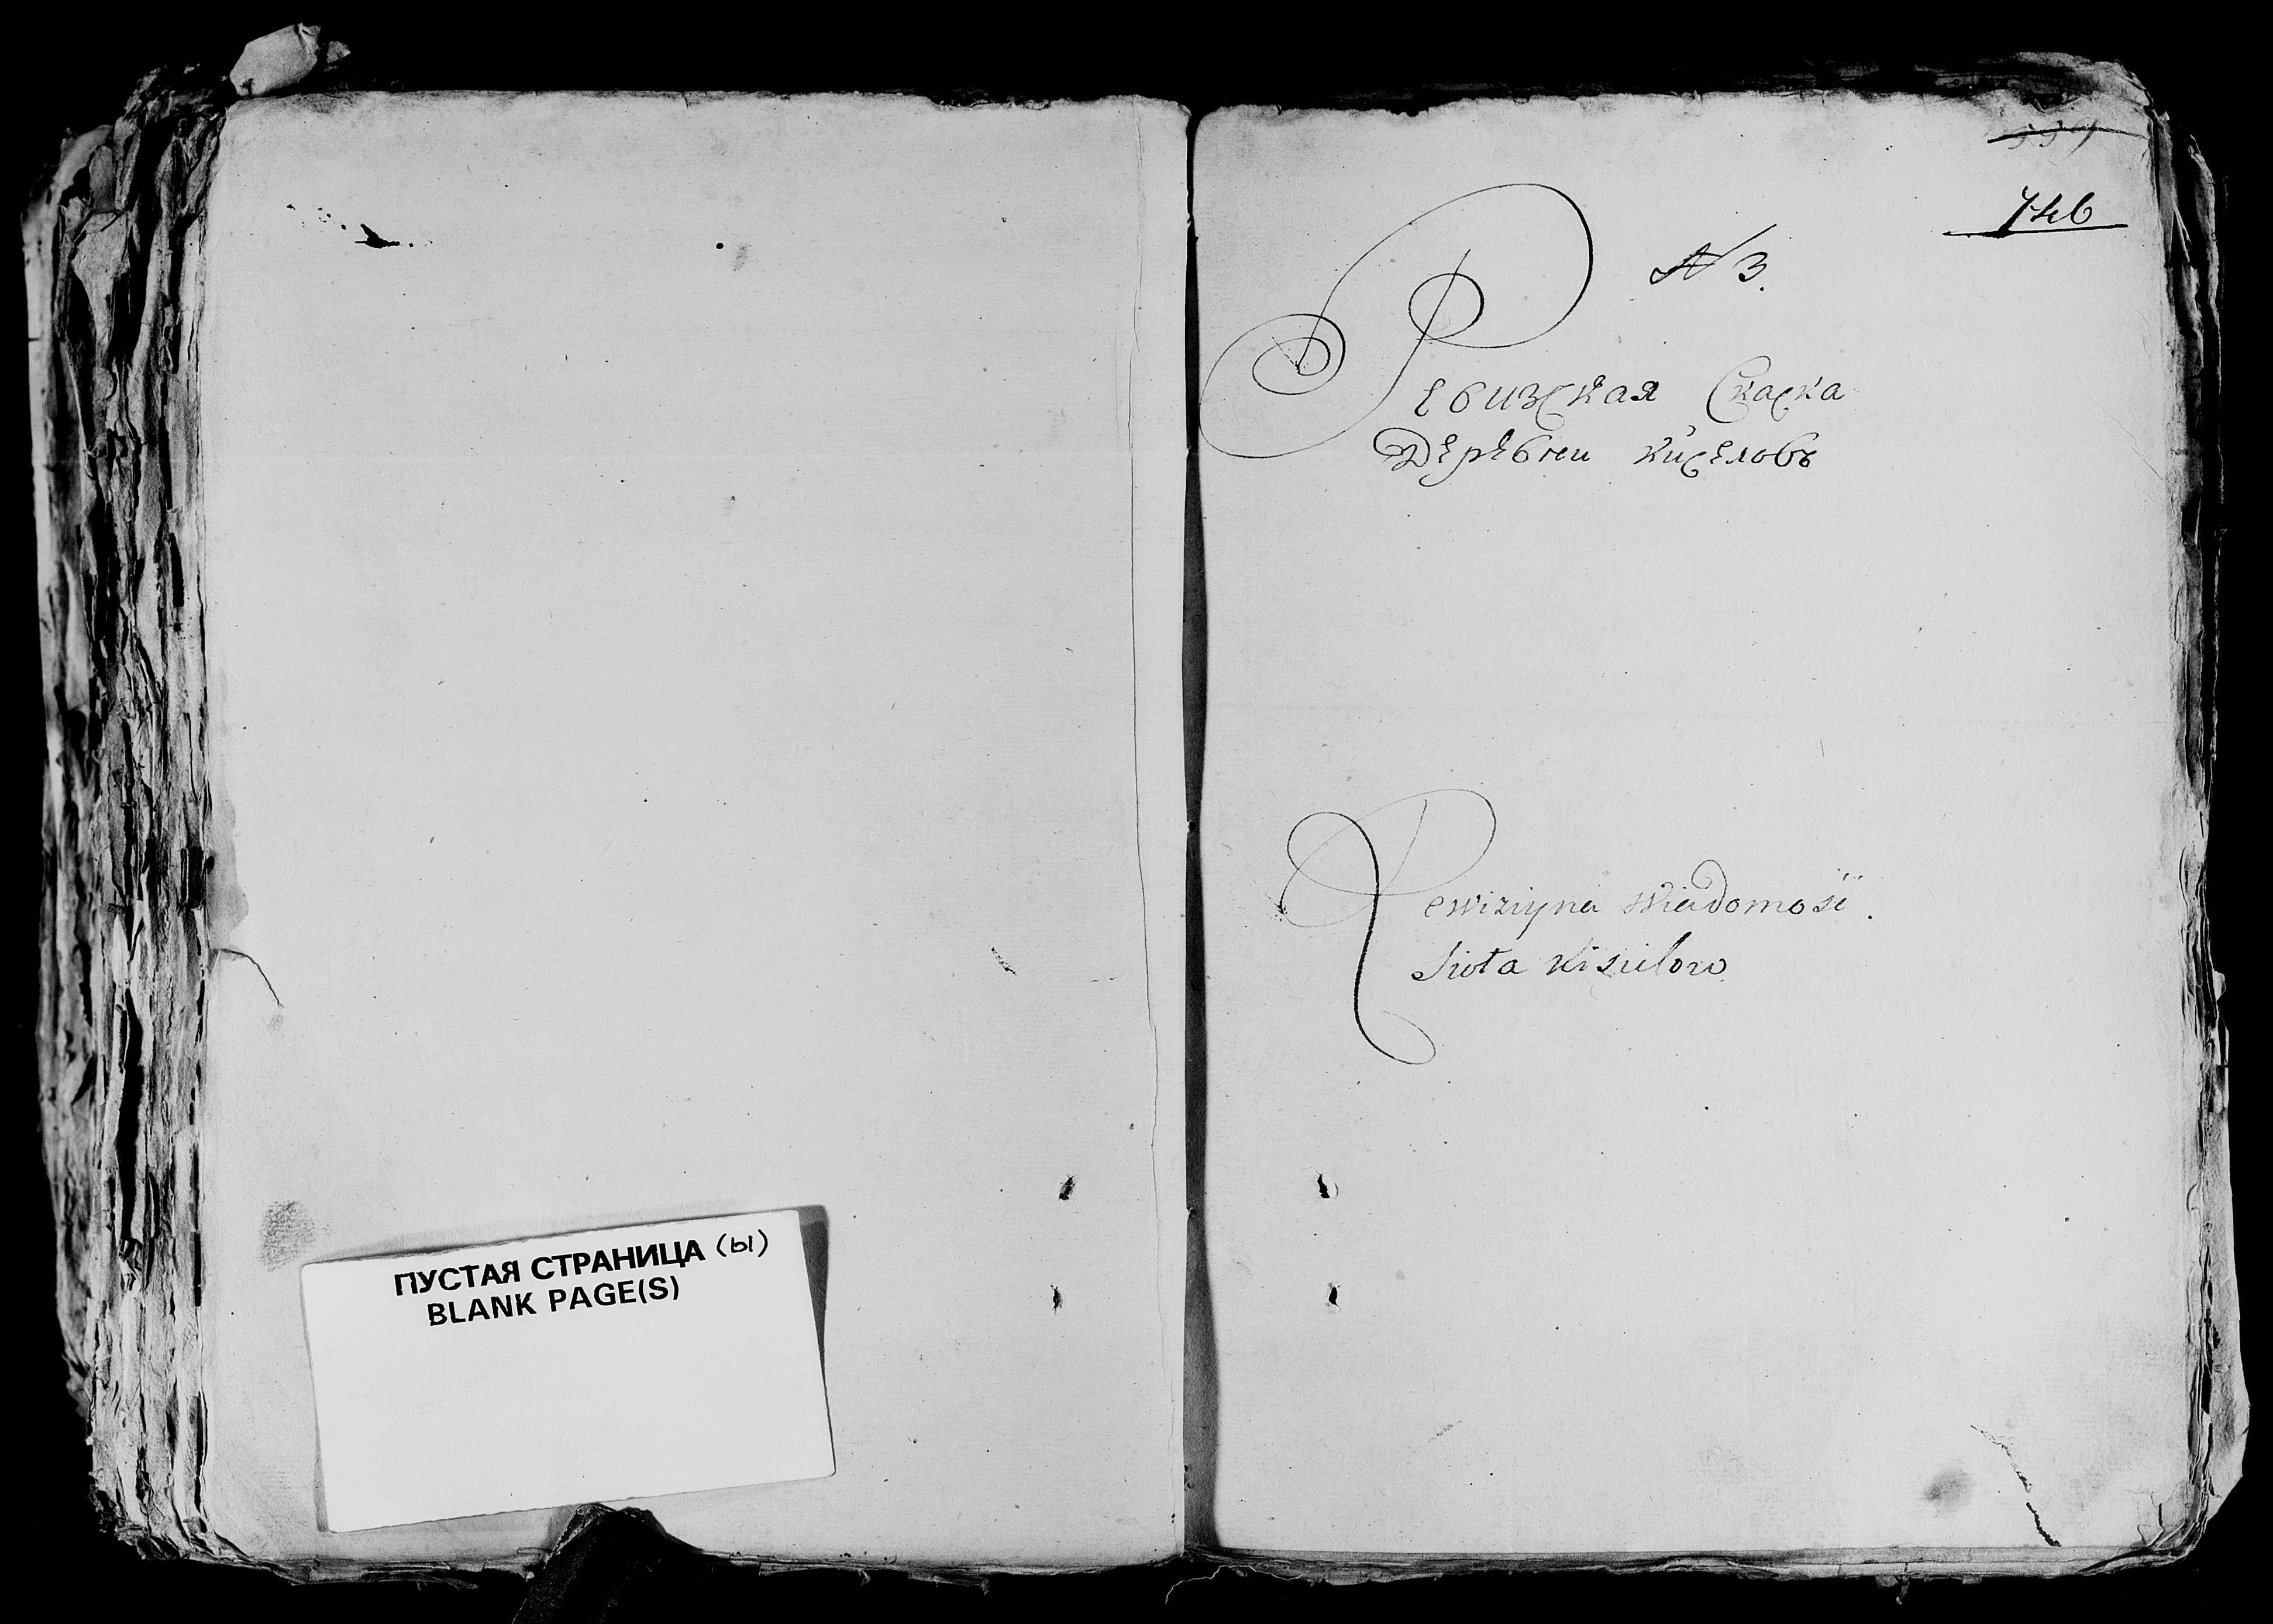 ПУСТАЯ СТРАНИЦА (ы)
BLANK PAGE(S)
746
N 3.
Ревизская Скаска
Деревни Киселовъ
Rewiziyna Wiadomość.
Sioła Kisielow